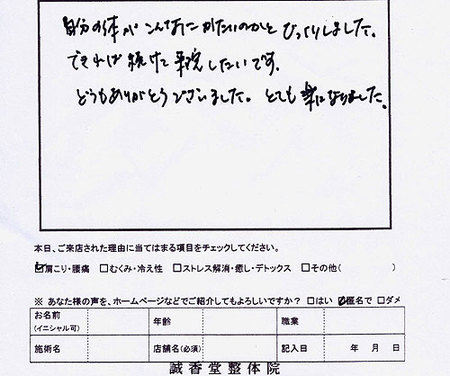 自分の体がこんなにかたいのかとびっくりしました。
できれば続けて来院したいです。
どうもありがとうございました。とても楽になりました。
本日、ご来店された理由に当てはまる項目をチェックしてください。
☑肩こり・腰痛 □むくみ・冷え性 □ストレス解消・癒し・デトックス □その他( )
※ あなた様の声を、ホームページなどでご紹介してもよろしいですか? □はい ☑匿名で □ダメ
お名前 年齢 職業
(イニシャル可)
施術名 店舗名(必須) 記入日 年 月 日
誠香堂整体院